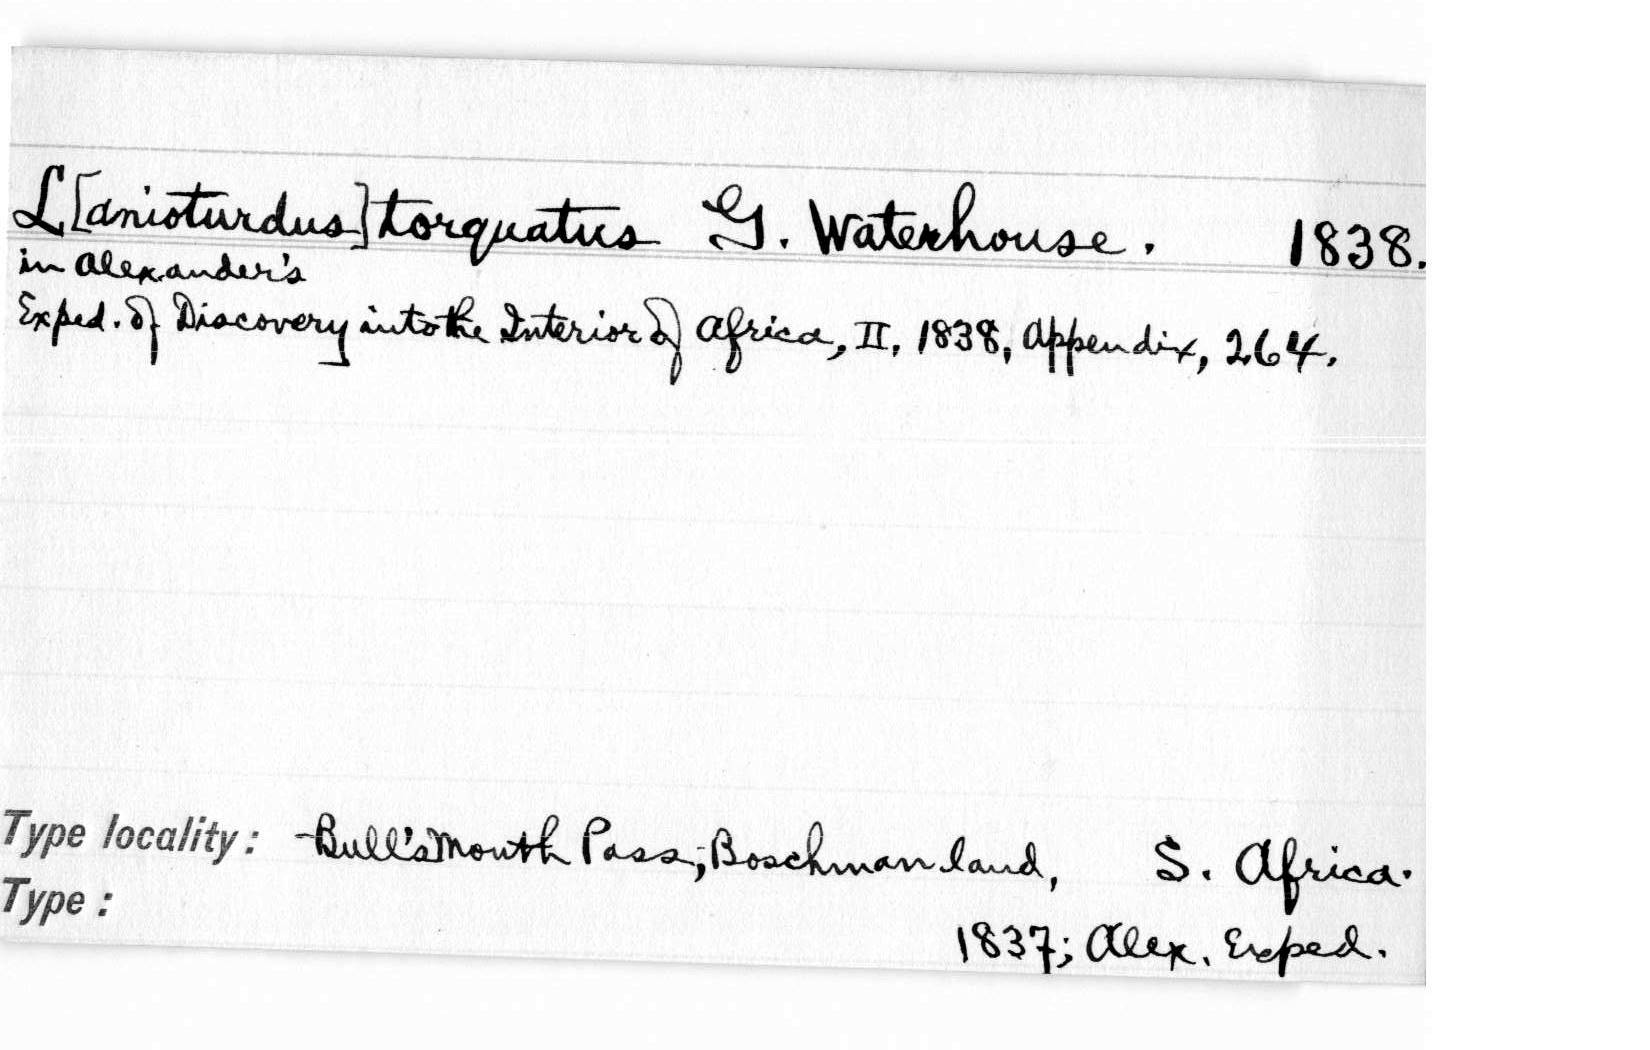 L[anioturdus] torquatus G. Waterhouse. 1838.
in Alexander's
Exped. of Discovery into the Interior of Africa, II, 1838, Appendix, 264.
Type locality: Bull's Mouth Pass, Boschmanland, S. Africa.
Type: 1837; Alex. Exped.